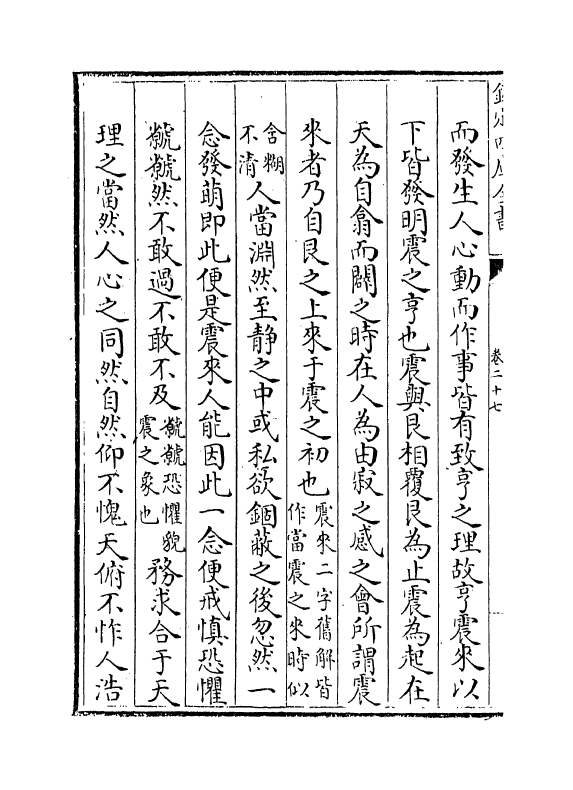 欽定四庫全書
卷二十七
而發生人心動而作事皆有致亨之理故亨震來以
下皆發明震之亨也震與艮相覆艮為止震為起在
天為自翕而闢之時在人為由寂之感之會所謂震
來者乃自艮之上來于震之初也震來二字舊解皆
作當震之來時似
含糊
不清人當淵然至静之中或私欲錮蔽之後忽然一
念發萌即此便是震來人能因此一念便戒慎恐懼
虩虩然不敢過不敢不及虩虩恐懼貌
震之象也務求合于天
理之當然人心之同然自然仰不愧天俯不怍人浩